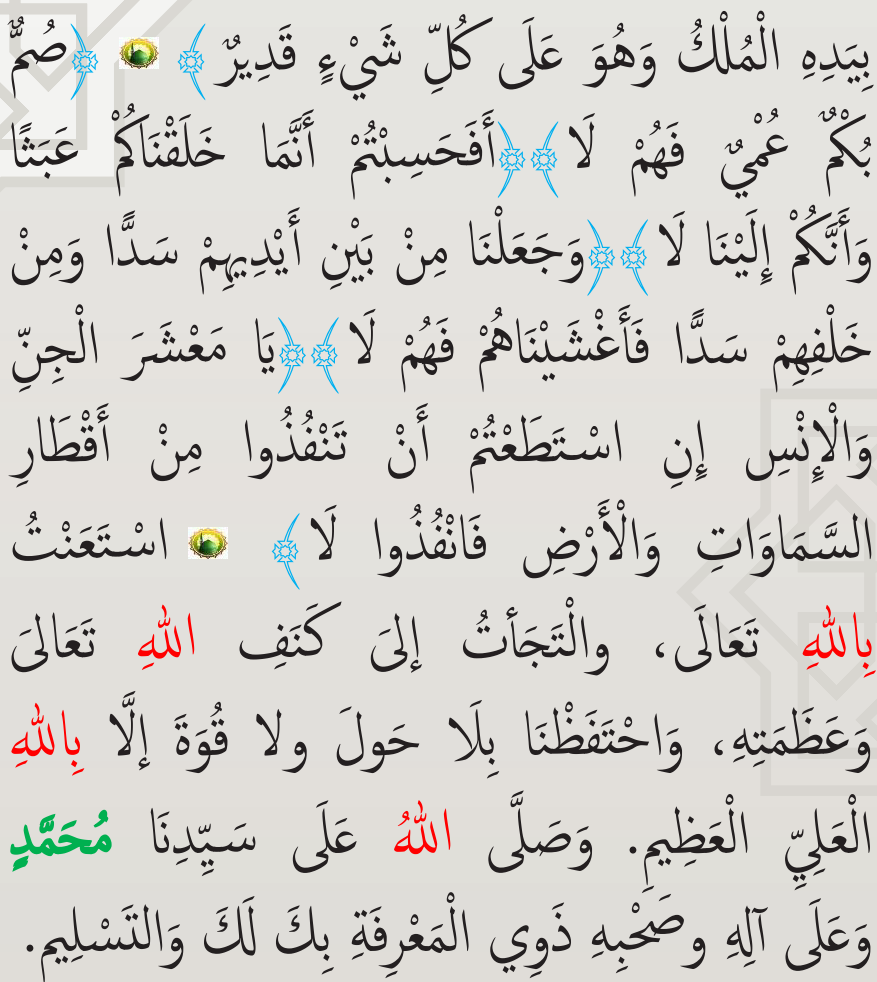 بِيَدِهِ الْمُلْكُ وَهُوَ عَلَى كُلِّ شَيْءٍ قَدِيرٌ﴾ ﴿صُمٌّ
بُكْمٌ عُمْيٌ فَهُمْ لَا﴾﴿أَفَحَسِبْتُمْ أَنَّمَا خَلَقْنَاكُمْ عَبَثًا
وَأَنَّكُمْ إِلَيْنَا لَا﴾﴿وَجَعَلْنَا مِنْ بَيْنِ أَيْدِيهِمْ سَدًّا وَمِنْ
خَلْفِهِمْ سَدًّا فَأَغْشَيْنَاهُمْ فَهُمْ لَا﴾﴿يَا مَعْشَرَ الْجِنِّ
وَالْإِنْسِ إِنِ اسْتَطَعْتُمْ أَنْ تَنْفُذُوا مِنْ أَقْطَارِ
السَّمَاوَاتِ وَالْأَرْضِ فَانْفُذُوا لَا﴾ اسْتَعَنْتُ
بِاللهِ تَعَالَى، والْتَجَأتُ إلىَ كَنَفِ اللهِ تَعَالىَ
وَعَظَمَتِهِ، وَاحْتَفَظْنَا بِلَا حَولَ ولا قُوَةَ إلَّا بِاللهِ
الْعَلِيِّ الْعَظِيمِ. وَصَلَّى اللهُ عَلَى سَيِّدِنَا مُحَمَّدٍ
وَعَلَى آلِهِ وصَحْبِهِ ذَوِي الْمَعْرِفَةِ بِكَ لَكَ وَالتَسْلِيم.